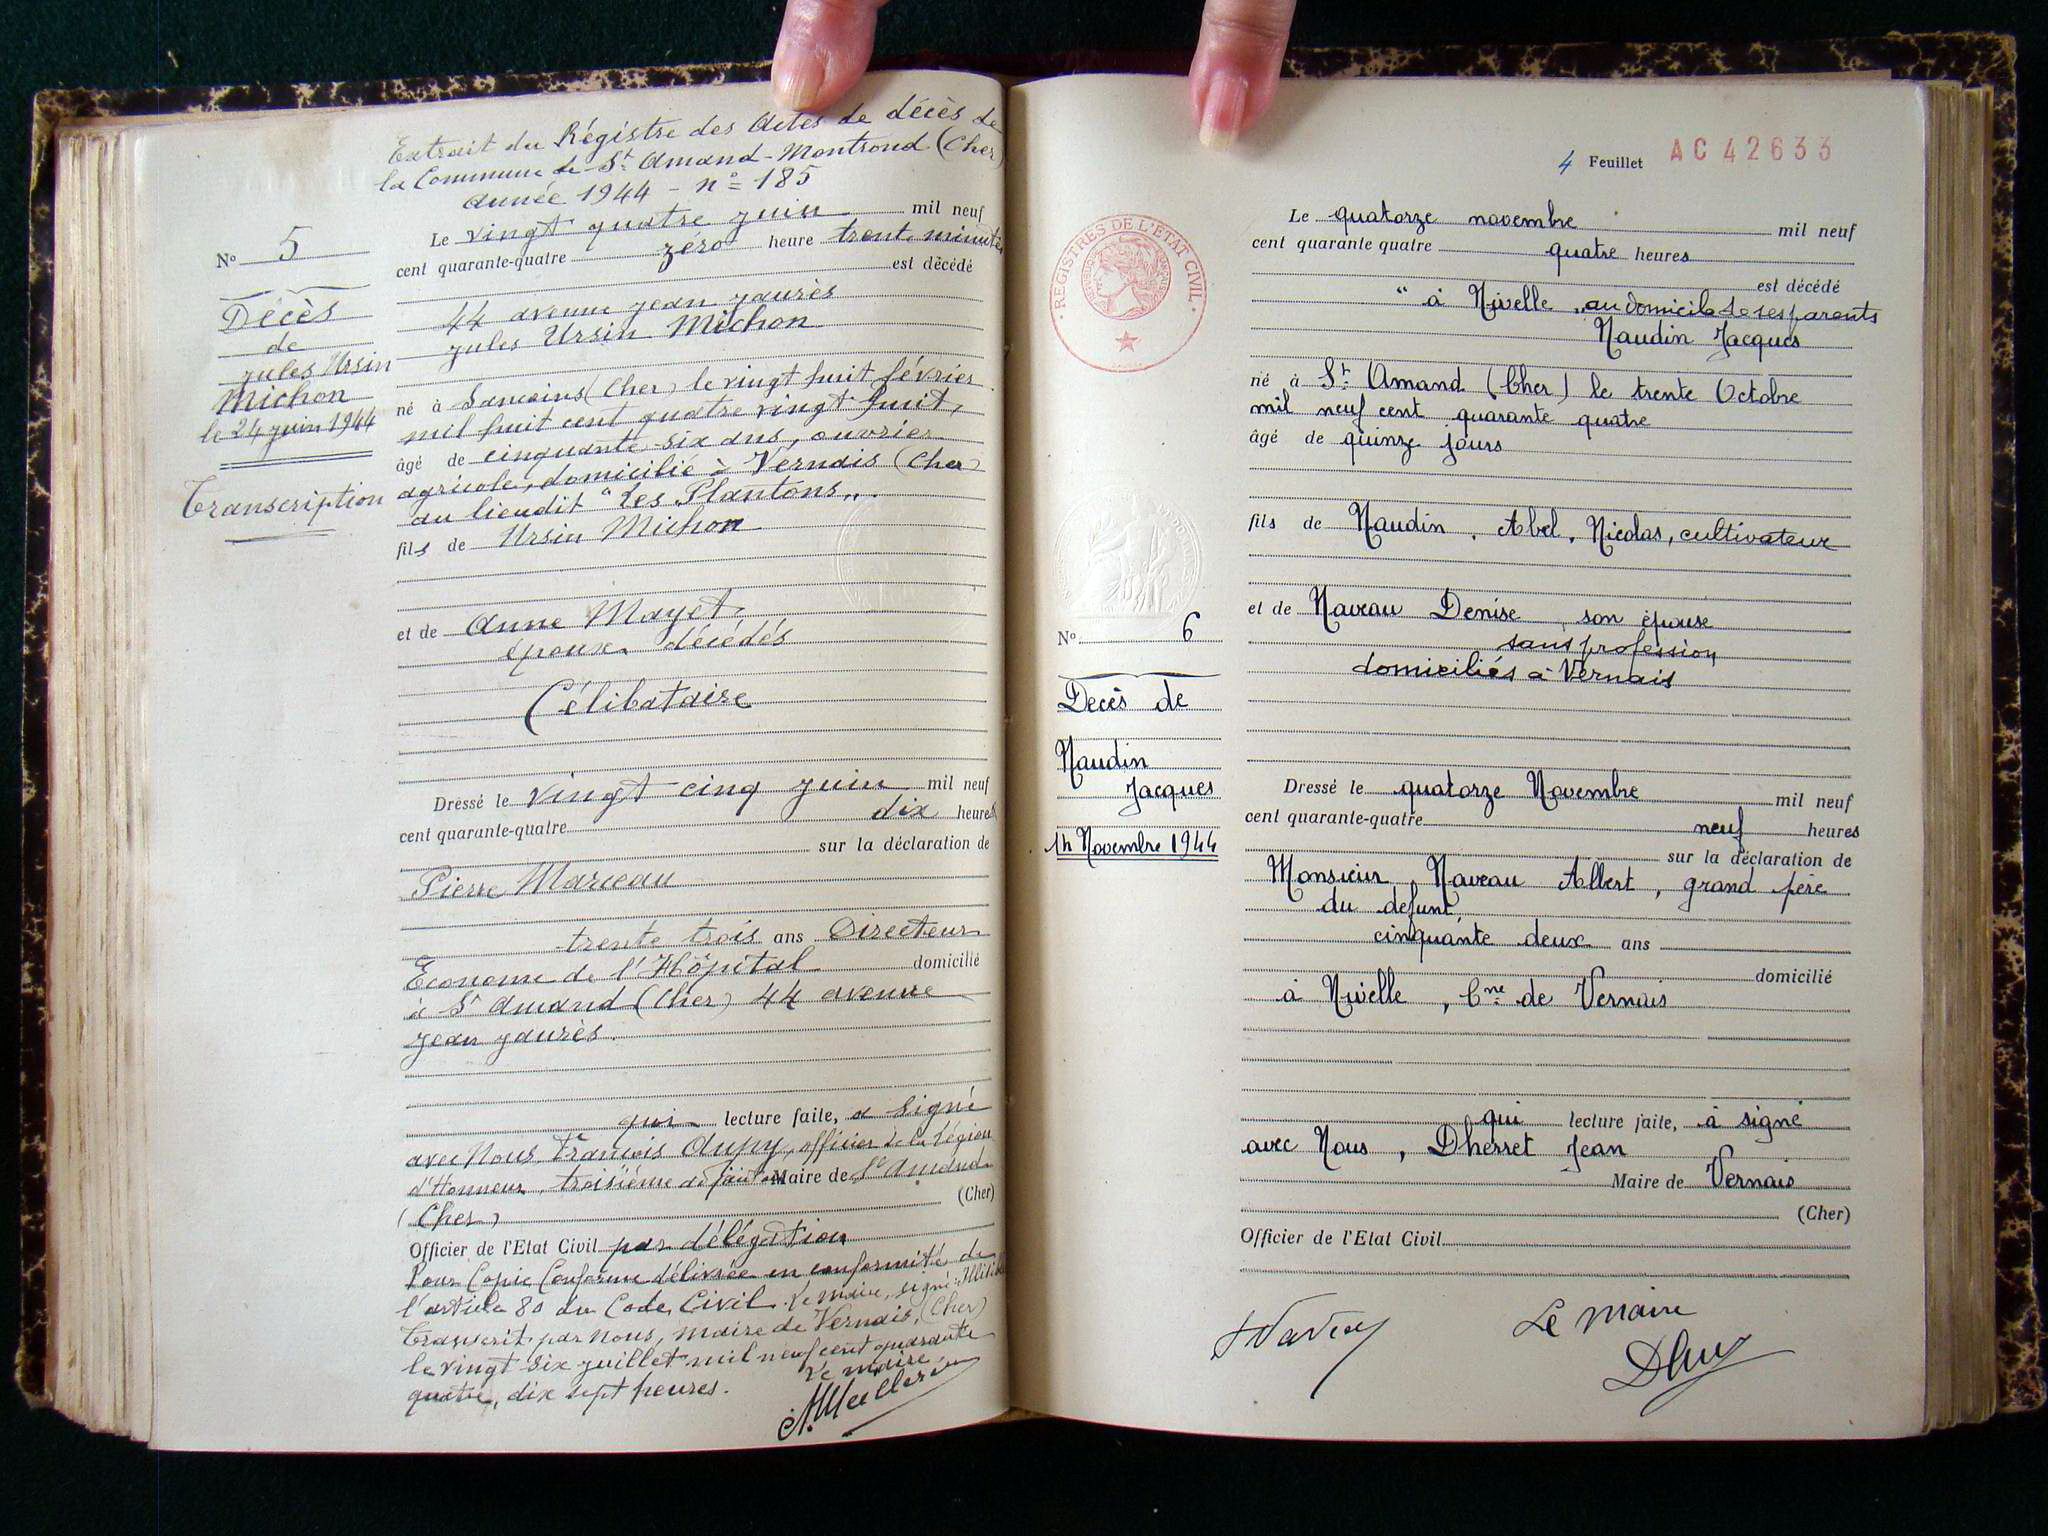 Extrait du Régistre des Actes de décès de
la Commune de St Amand-Montrond (Cher)
année 1944 - n° 185
Le vingt quatre juin mil neuf
cent quarante-quatre zero heure trente minutes
est décédé
44 avenue jean jaurès
jules Ursin Michon
né à Sancoins (Cher) le vingt huit février
mil huit cent quatre vingt huit,
âgé de cinquante-six ans, ouvrier
agricole, domicilié à Vernais (Cher)
au lieudit "Les Plantons".
fils de Ursin Michon
et de Anne Mayet
époux décédés
Célibataire
Dressé le vingt cinq juin mil neuf
cent quarante-quatre dix heures
sur la déclaration de
Pierre Marceau
trente trois ans Directeur
Econome de l'Hôpital domicilié
à St Amand (Cher) 44 avenue
jean jaurès.
qui lecture faite, a signé
avec Nous François Aupy, officier de la Légion
d'Honneur, troisième adjoint au Maire de St Amand
(Cher)
(Cher)
Officier de l'Etat Civil par délégation
Pour Copie Conforme délivrée en conformité de
l'article 80 du Code Civil. Le Maire, signé:
Transcrit par Nous, maire de Vernais, (Cher)
le vingt six juillet mil neuf cent quarante
quatre, dix sept heures.
Le maire
N° 5
Décès
de
jules Ursin
Michon
le 24 juin 1944
Transcription
4 Feuillet AC 42633
REGISTRES DE L'ETAT CIVIL
Le quatorze novembre mil neuf
cent quarante quatre quatre heures
est décédé
" à Nivelle „ au domicile de ses parents
Naudin Jacques
né à St Amand (Cher) le trente Octobre
mil neuf cent quarante quatre
âgé de quinze jours
fils de Naudin, Abel, Nicolas, cultivateur
et de Naveau Denise, son épouse
sans profession
domiciliés à Vernais
N° 6
Decès de
Naudin
Jacques
14 Novembre 1944
Dressé le quatorze Novembre mil neuf
cent quarante-quatre neuf heures
sur la déclaration de
Monsieur Naveau Albert, grand père
du defunt,
cinquante deux ans
domicilié
à Nivelle, Cne de Vernais
qui lecture faite, à signé
avec Nous, Dherret Jean
Maire de Vernais
(Cher)
Officier de l'Etat Civil
Le Maire